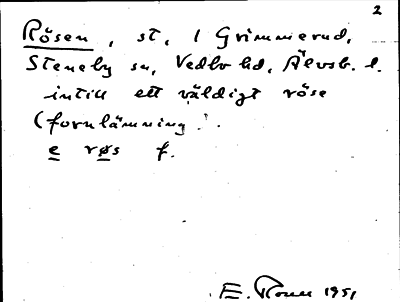 2
Rösen, st, i Grimmerud,
Steneby sn, Vedbo hd, Älvsb. l.
intill ett väldigt röse
(fornlämning).
e røs f.
E. 1951